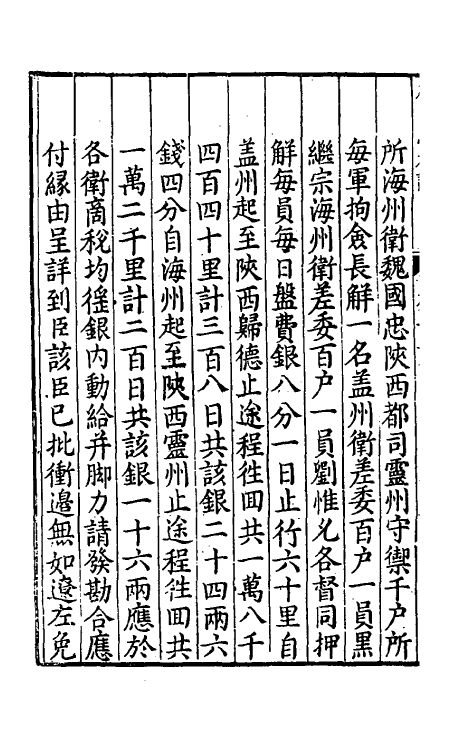 所海州衛魏國忠陝西都司靈州守禦千户所
毎軍拘僉長解一名盖州衛差委百户一員黒
繼宗海州衛差委百户一員劉惟乆各督同押
解毎員毎日盤費銀八分一日止行六十里自
盖州起至陝西歸德止途程徃囬共一萬八千
四百四十里計三百八日共該銀二十四兩六
錢四分自海州起至陝西靈州止途程徃囬共
一萬二千里計二百日共該銀一十六兩應於
各衛商稅均徭銀内動給并脚力請發勘合應
付縁由呈詳到臣該臣已批衝邊無如遼左免